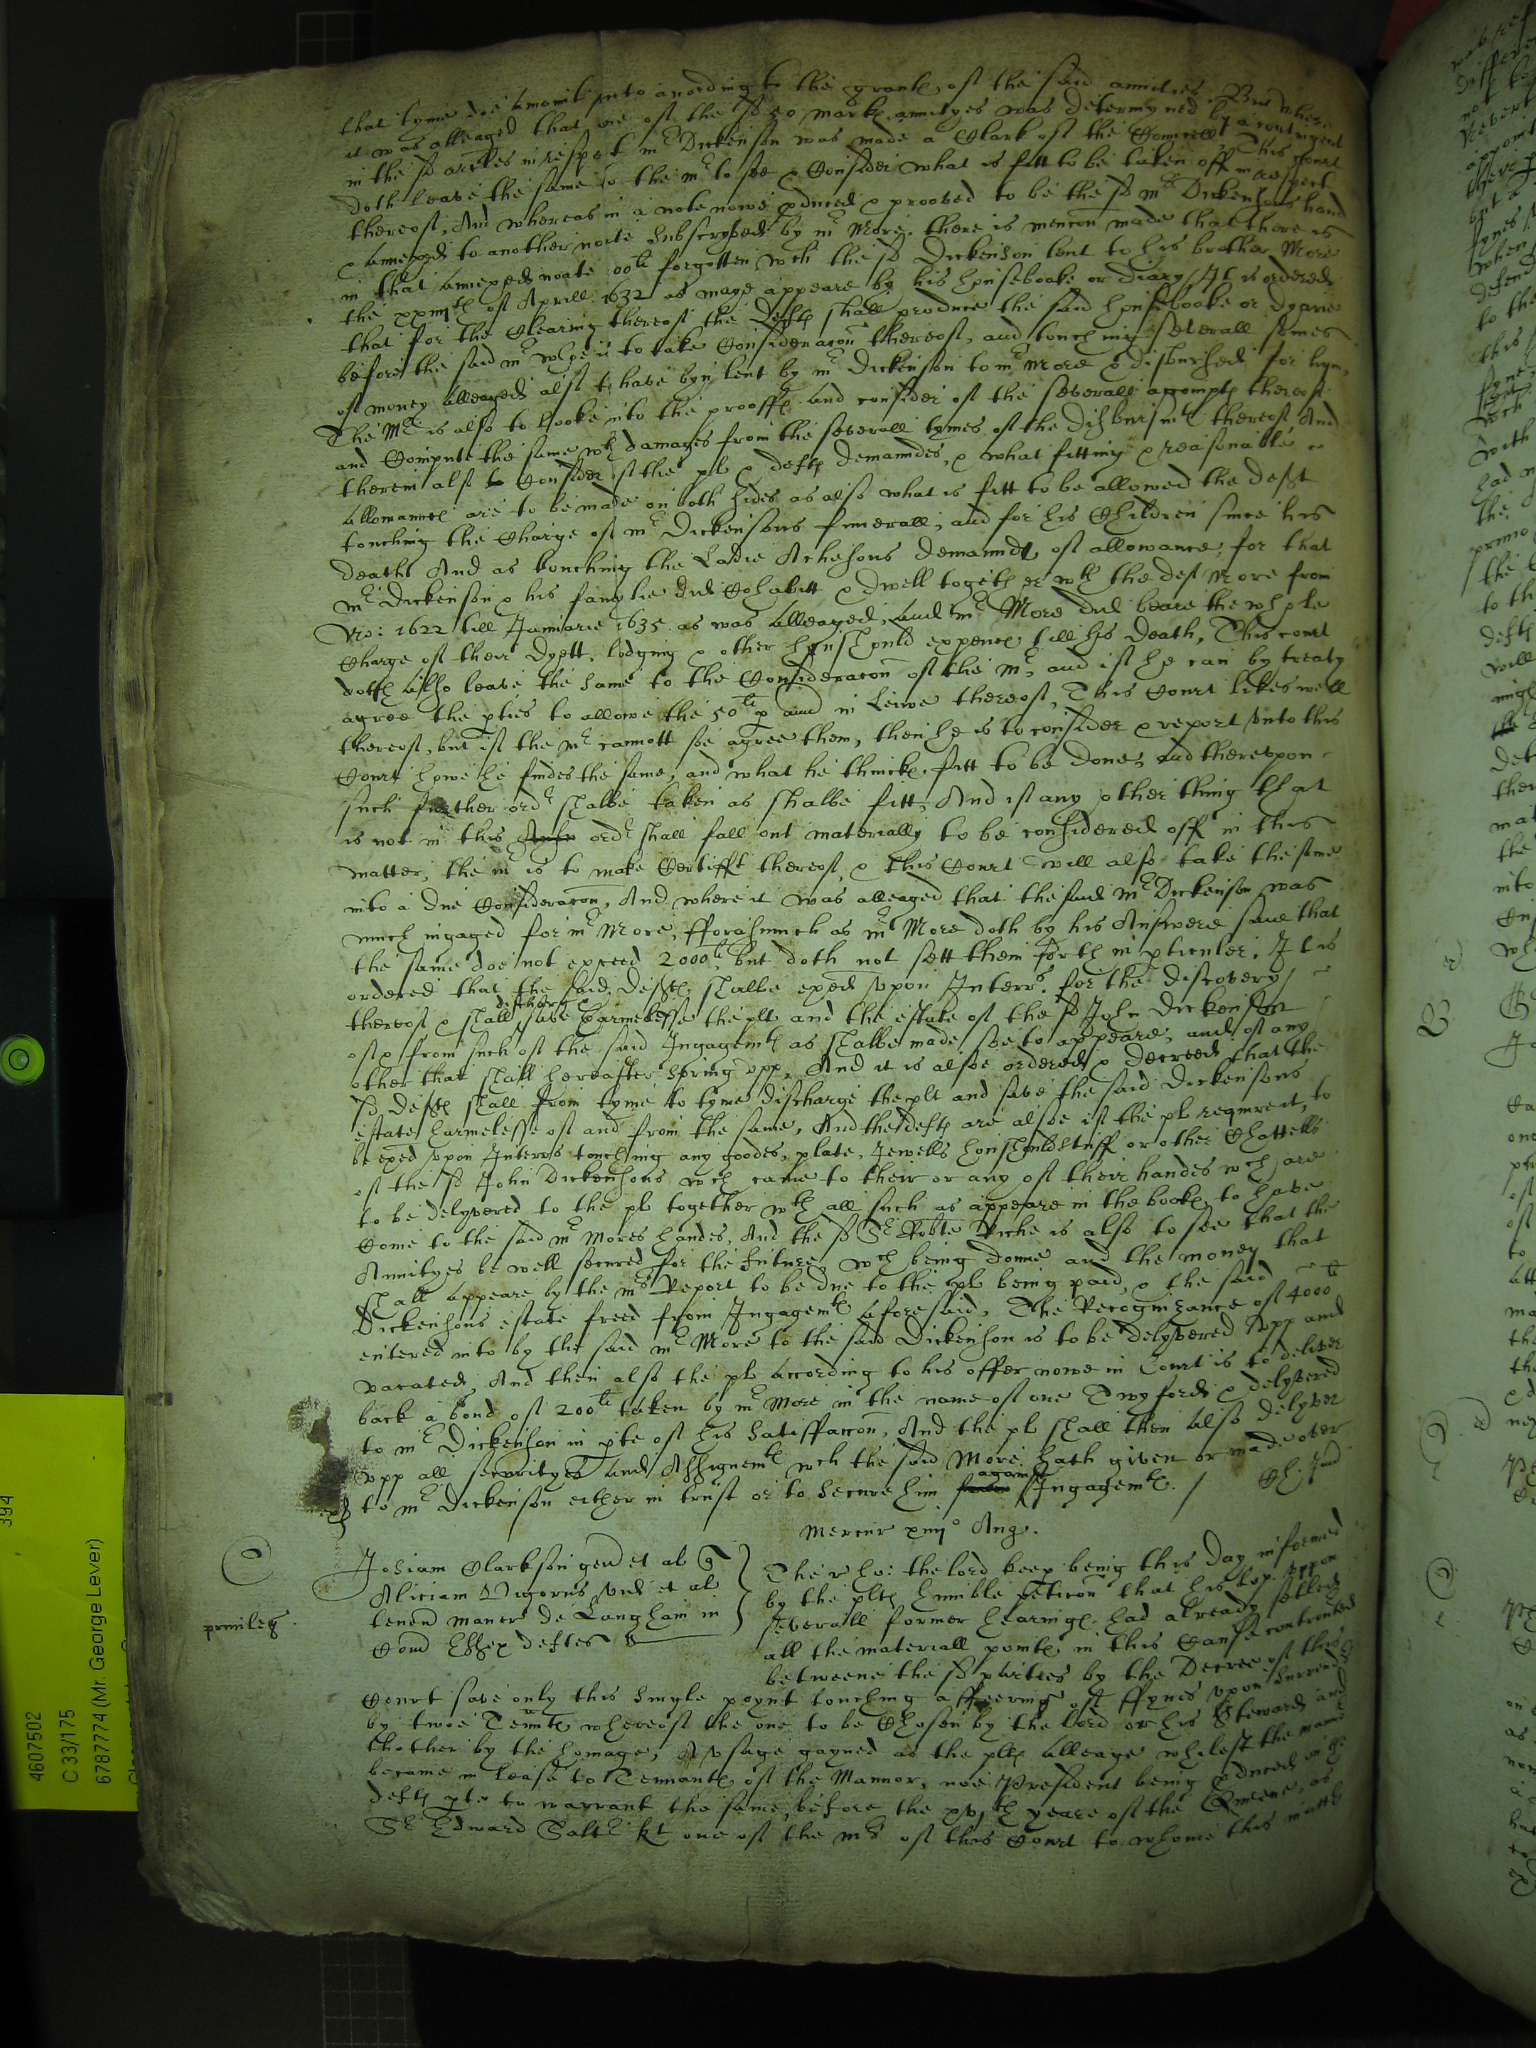 that tyme doe amount unto according to the graunt of the said annities. But where
it was alleaged that one of the sd 50 marks annityes was determyned by a contingent
in the sd articles in respect mr Dickenson was made a Clark of the Councell This Court
doth leave the same to the mr to see & Consider what is fitt to be taken off in respect
thereof, And whereas in a note nowe pduced & prooved to be the sd mr Dickensons hand
& annexed to another noate subscrybed by mr More, there is mencon made that there is
in that annexed noate 00li forgotten wch the sd Dickenson lent to his brother More
the xxiiijth of Aprill 1632 as maye appeare by his housebooke or diary, It is ordered
that for the Clearing thereof the Defts shall produce the said housebooke or dyarie
before the said mr whoe is to take Consideracon thereof, and touching severall somes
of money alleaged also to have byn lent by mr Dickenson to mr More & disbursed for him,
The Mr is also to looke into the prooffs and consider of the severall accompts thereof
and Compute the same wth damages from the severall tymes of the disbursmts thereof And
therein also to Consider of the pl & defts demaundes, & what fitting & reasonable
allowannces are to be made on both sides as also what is fitt to be allowed the deft
touching the Charge of mr Dickensons funerall, and for his Children since his
death And as touching the Ladie Achesons demaundt of allowance, for that
mr Dickenson & his familie did Cohabitt & dwell together wth the deft More from
1622 till Januarie 1635 as was alleaged and mr More did beare the whole
Charge of their Dyett, lodging & other houshould expences till his Death, This court
doth also leave the same to the Consideracon of the mr, and if he can by treaty
agree the pties to allowe the 50li p annu in leiwe thereof, This Court likes well
thereof, but if the mr cannott soe agree them, then he is to consider & report unto this
Court howe he findes the same, and what he thinckes fitt to be done, and thereupon
such further ordr shalbe taken as shalbe fitt, And if any other thing that
is not in this ordr shall fall out materially to be considered off in this
matter, the mr is to make Certifft thereof, & this Court will also take the same
into a due Consideracon, And where it was alleaged that the said mr Dickenson was
much ingaged for mr More, fforasmuch as mr More doth by his Answere saie that
the same doe not exceed 2000li, but doth not sett them forth in pticuler. It is
ordered that the said Defts shalbe exed upon Interrs for the discovery
thereof & shall discharge & save harmelesse the plt and the estate of the sd John Dickenson
of & from such of the said Ingagemts as shalbe made soe to appeare, and of any
other that shall hereafter spring upp, And it is alsoe ordered & decreed that the
sd Defts shall from tyme to tyme discharge the plt and save the said Dickensons
estate harmelesse of and from the same, And the defts are alsoe if the pl require it, to
be exed upon Interrs touching any goodes, plate, Jewells houshouldstuff or other Chattells
of the sd John Dickensons wch came to their or any of their handes wch are
to be delyvered to the pl together wth all such as appeare in the books to have
Come to the said mr Mores handes, And the sd Sr Robte Riche is also to see that the
Annityes be well secured for the future, wch being donne and the money that
shall appeare by the mrs Report to be due to the pl being paid, & the said
Dickensons estate freed from Ingagemts aforesaid, The Recognizance of 4000li
entered into by the said mr More to the said Dickenson is to be delyvered upp and
vacated, And then also the pl according to his offer nowe in Court is to deliver
back a bond of 200li taken by mr More in the name of one Twyford & delyvered
to mr Dickenson in pte of his satisfaccon, And the pl shall then also delyver
upp all securityes and Assignemts wch the said More hath given or made over
to mr Dickenson either in trust or to secure him against Ingagemts. /
Mercur xiiijo Aug.
privileg
Josiam Clarkson gen et al Q
Aliciam Vigorus vid et al
tenen maner de Langham in
Com Essex deftes
The r ho: the lord keep being this day informed
by the plts humble peticon that his lop uppon
severall former hearings had already setled
all the materiall pointes in this Cause controverted
betweene the sd parties by the Decree of this
Court save only this single poynt touching affeering of ffynes upon surrenders
by twoe Tennts whereof the one to be Chosen by the lord or his Steward and
thother by the homage; A usage gayned as the plts alleage whilest the mannor
became in lease to Tennants of the Mannor, noe President being pduced on the
defts pte to warrant the same, before the xvjth yeare of the Queene, as
Sr Edward Salter kt one of the mrs of this Court to whome this matter
394
4607502
C 33/175
6787774 (Mr. George Lever)